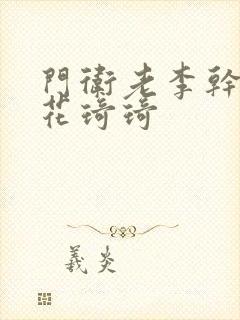 門衛老李幹
花琦琦
義炎